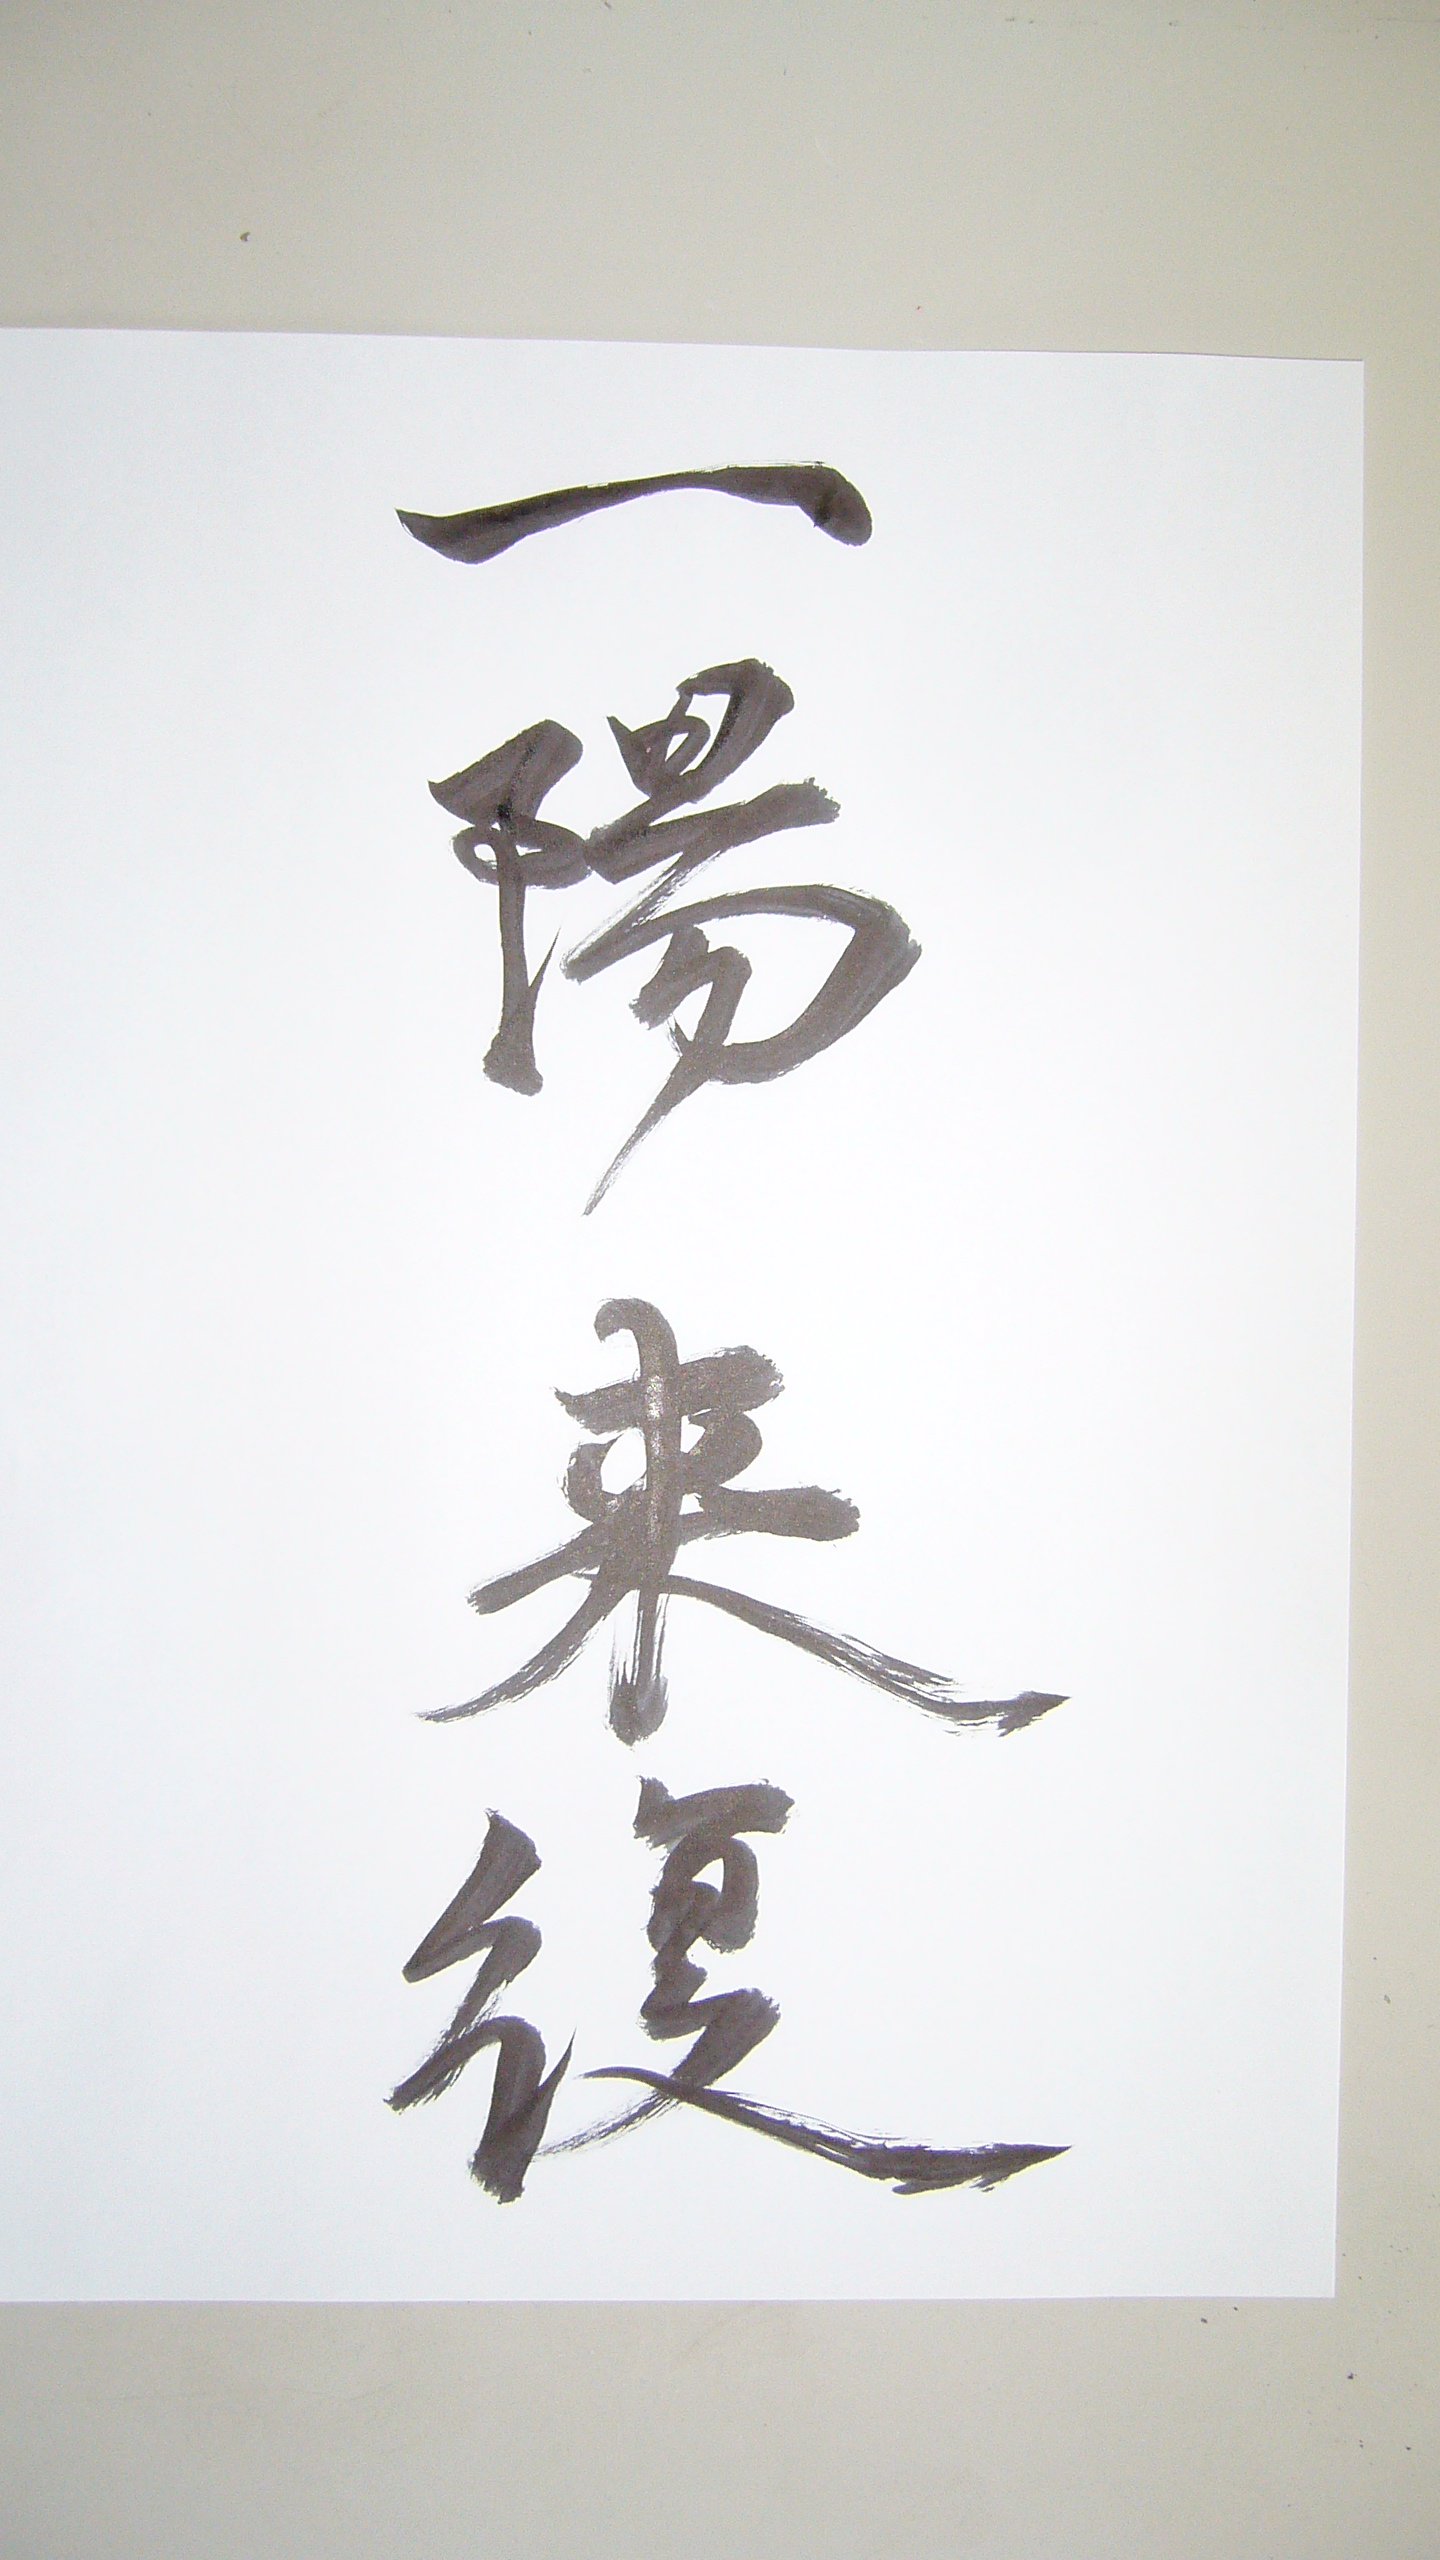 一陽来復